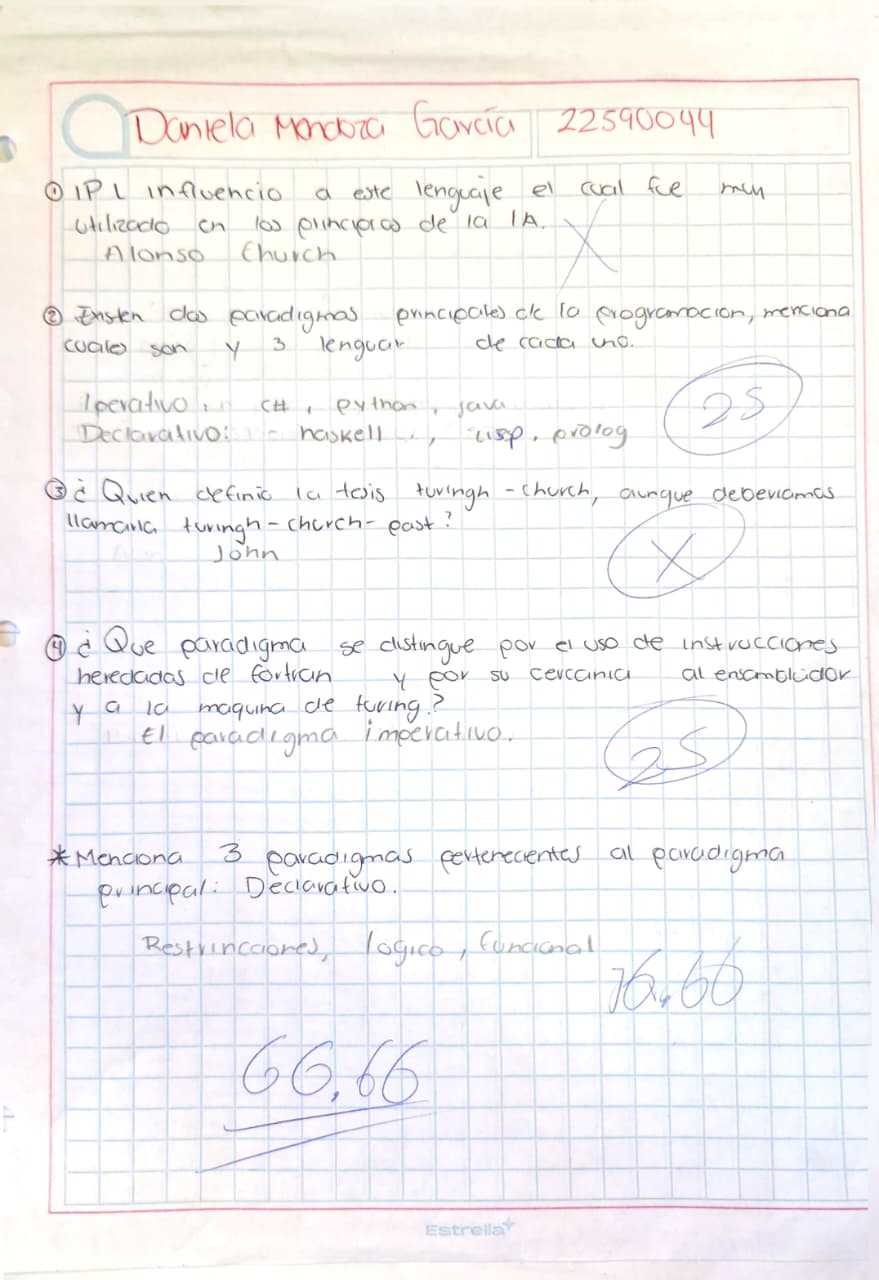 Daniela Mendoza García 22590044
① IPL influencio a este lenguaje el cual fue muy
utilizado en los principios de la IA.
X
Alonso Church
② Existen dos paradigmas principales de la programacion, menciona
cuales son y 3 lenguar de cada uno.
Iperativo: C#, python, java
25
Declarativo: - haskell , Lisp, prolog
③ ¿Quien definio la tesis turingh-church, aunque deberiamos
llamarla turingh-church-past?
John
X
④ ¿Que paradigma se distingue por el uso de instrucciones
heredadas de fortran y por su cercania al ensamblador
y a la maquina de turing?
El paradigma imperativo.
25
*Menciona 3 paradigmas pertenecientes al paradigma
principal: Declarativo.
Restrincciones, logico, funcional
16.66
66.66
Estrella